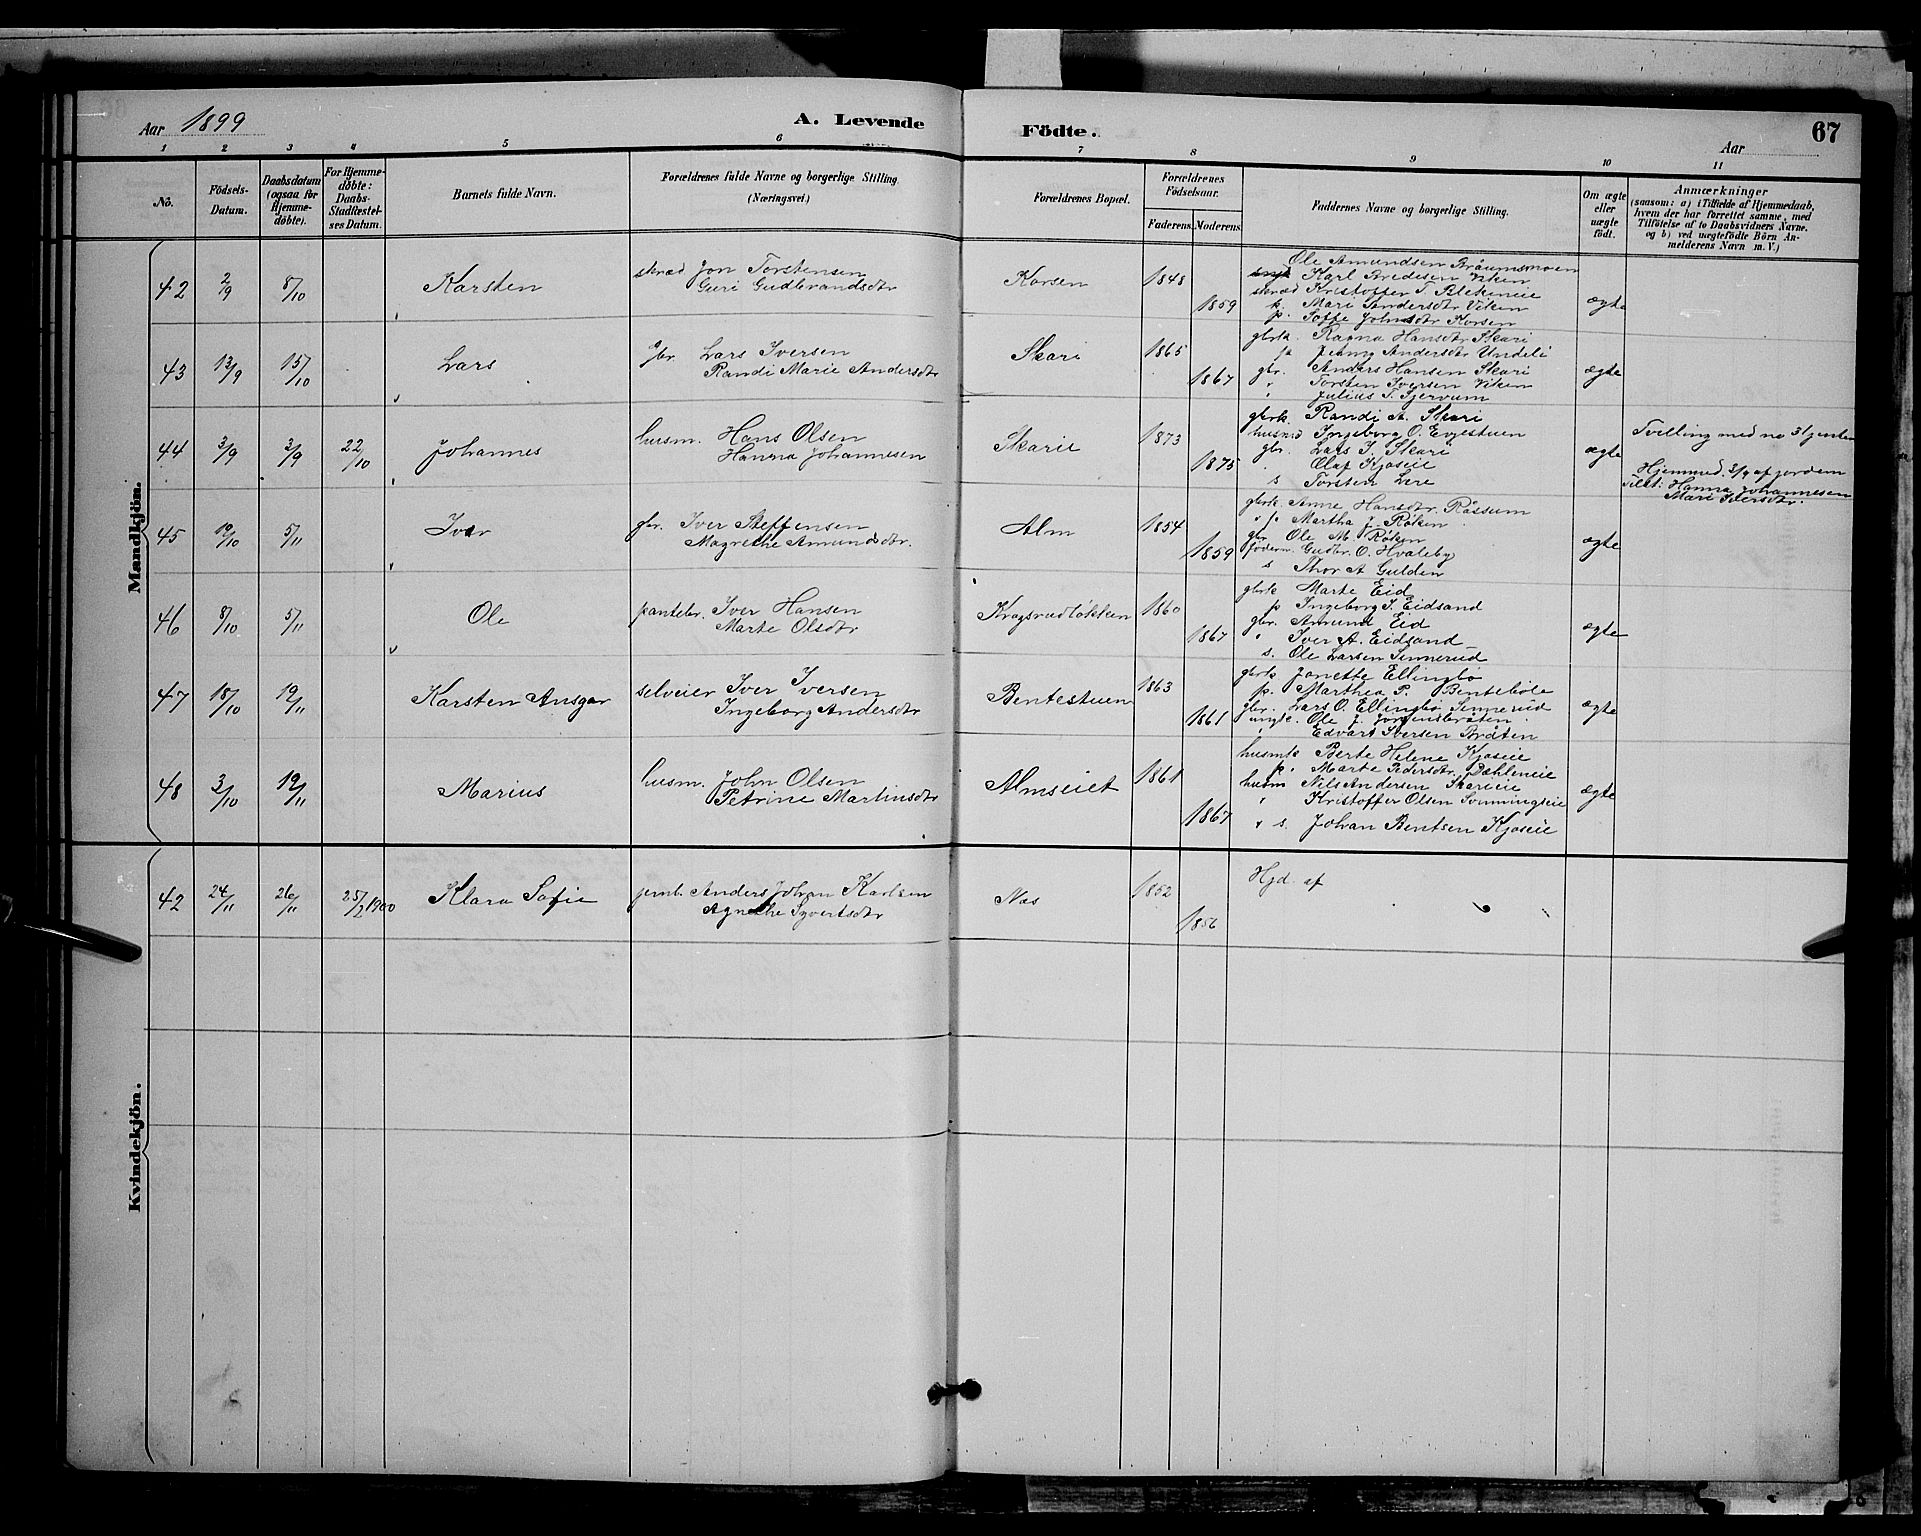 Aar 1899
A. Levende
Födte.
Aar
67
1 2 3 4 5 6 7 8 9 10 11
No.
Födsels-
Datum.
Daabsdatum
(ogsaa for
Hjemme-
döbte).
For Hjemme-
döbte:
Daabs-
Stadfæstel-
ses Datum.
Barnets fulde Navn.
Forældrenes fulde Navne og borgerlige Stilling
(Næringsvei.)
Forældrenes Bopæl.
Forældrenes
Födselsaar.
Faderens. Moderens.
Faddernes Navne og borgerlige Stilling.
Om ægte
eller
uægte
født.
Anmærkninger
(saasom: a) i Tilfælde af Hjemmedaab,
hvem der har forrettet samme, med
Tilföielse af to Daabsvidners Navne.
og b) ved uægtefödte Börn An-
melderens Navn m. V.)
Mandkjön.
42 2/9 8/10 Karsten
skræd Jon Torstensen
Guri Gudbrandsdtr
Korsen 1848
1859
Ole Amundsen Bråumsmoen
Karl Bredesen Viken
skræd Kristoffer T. Blekeneie
p. Mari Sandersdtr Viken
p. Soffe Johnsdtr Korsen
ægte
43 13/9 15/10 Lars
gbr. Lars Iversen
Randi Marie Andersdtr
Skari 1865
1867
gbrk. Ragna Hansdtr Skari
p Jenny Andersdtr Undeli
gbr. Anders Hansen Skari
" Torsten Iversen Viken
" Julius T. Tjervum
ægte
44 3/9 3/9 22/10 Johannes
husm. Hans Olsen
Hanna Johannesen
Skarie 1873
1875
gbrk. Randi A. Skari
Ingeborg O. Evjestuen
gbr. Lars I. Skari
Olaf Kjoseie
s Torsten Lere
ægte
Tvilling med no 31 jenter
Hjemmed. 3/9 af jordem
Hanna Johannesen
Mari Iversdtr.
45 19/10 5/11 Iver
gbr. Iver Steffensen
Magrethe Amundsdtr.
Alm 1854
1859
gbrk. Anne Hansdtr. Råssum
Martha J. Røken
gbr. Ole M. Røken
föderm. Gudbr. O. Hvaleby
s Thor A Gulden
ægte
46 8/10 5/11 Ole
pantebr. Iver Hansen
Marte Olsdtr
Kragsrudløkken 1860
1867
gbrk Marte Eid
p Ingeborg I. Eidsand
gbr. Amund Eid
" Iver A. Eidsand
s. Ole Larsen Sinnerud
ægte
47 18/10 19/11 Karsten Ansgar
selveier Iver Iversen
Ingeborg Andersdtr
Bentestuen 1863
1861
gbrk Janette Ellingbø
p. Marthea P. Bentebøle
gbr. Lars O. Ellingbø Sinnerud
ungk. Ole J. Jørgensbråten
" Edvart Iversen Bråten
ægte
48 3/10 19/11 Marius
husm. John Olsen
Petrine Martinsdtr
Almseiet 1861
1867
husmk Berte Helene Kjoseie
p. Marte Pedersdtr. Dæhleneie
husm Nils Andersen Skareie
" Kristoffer Olsen Svenningseie
" s. Johan Bentsen Kjoseie
ægte
Kvindekjön.
42 24/11 26/11 25/2 1900 Klara Sofie
jernb. Anders Johan Karlsen
Agnethe Syvertsdtr
Næs 1852
1856
Hjd. af